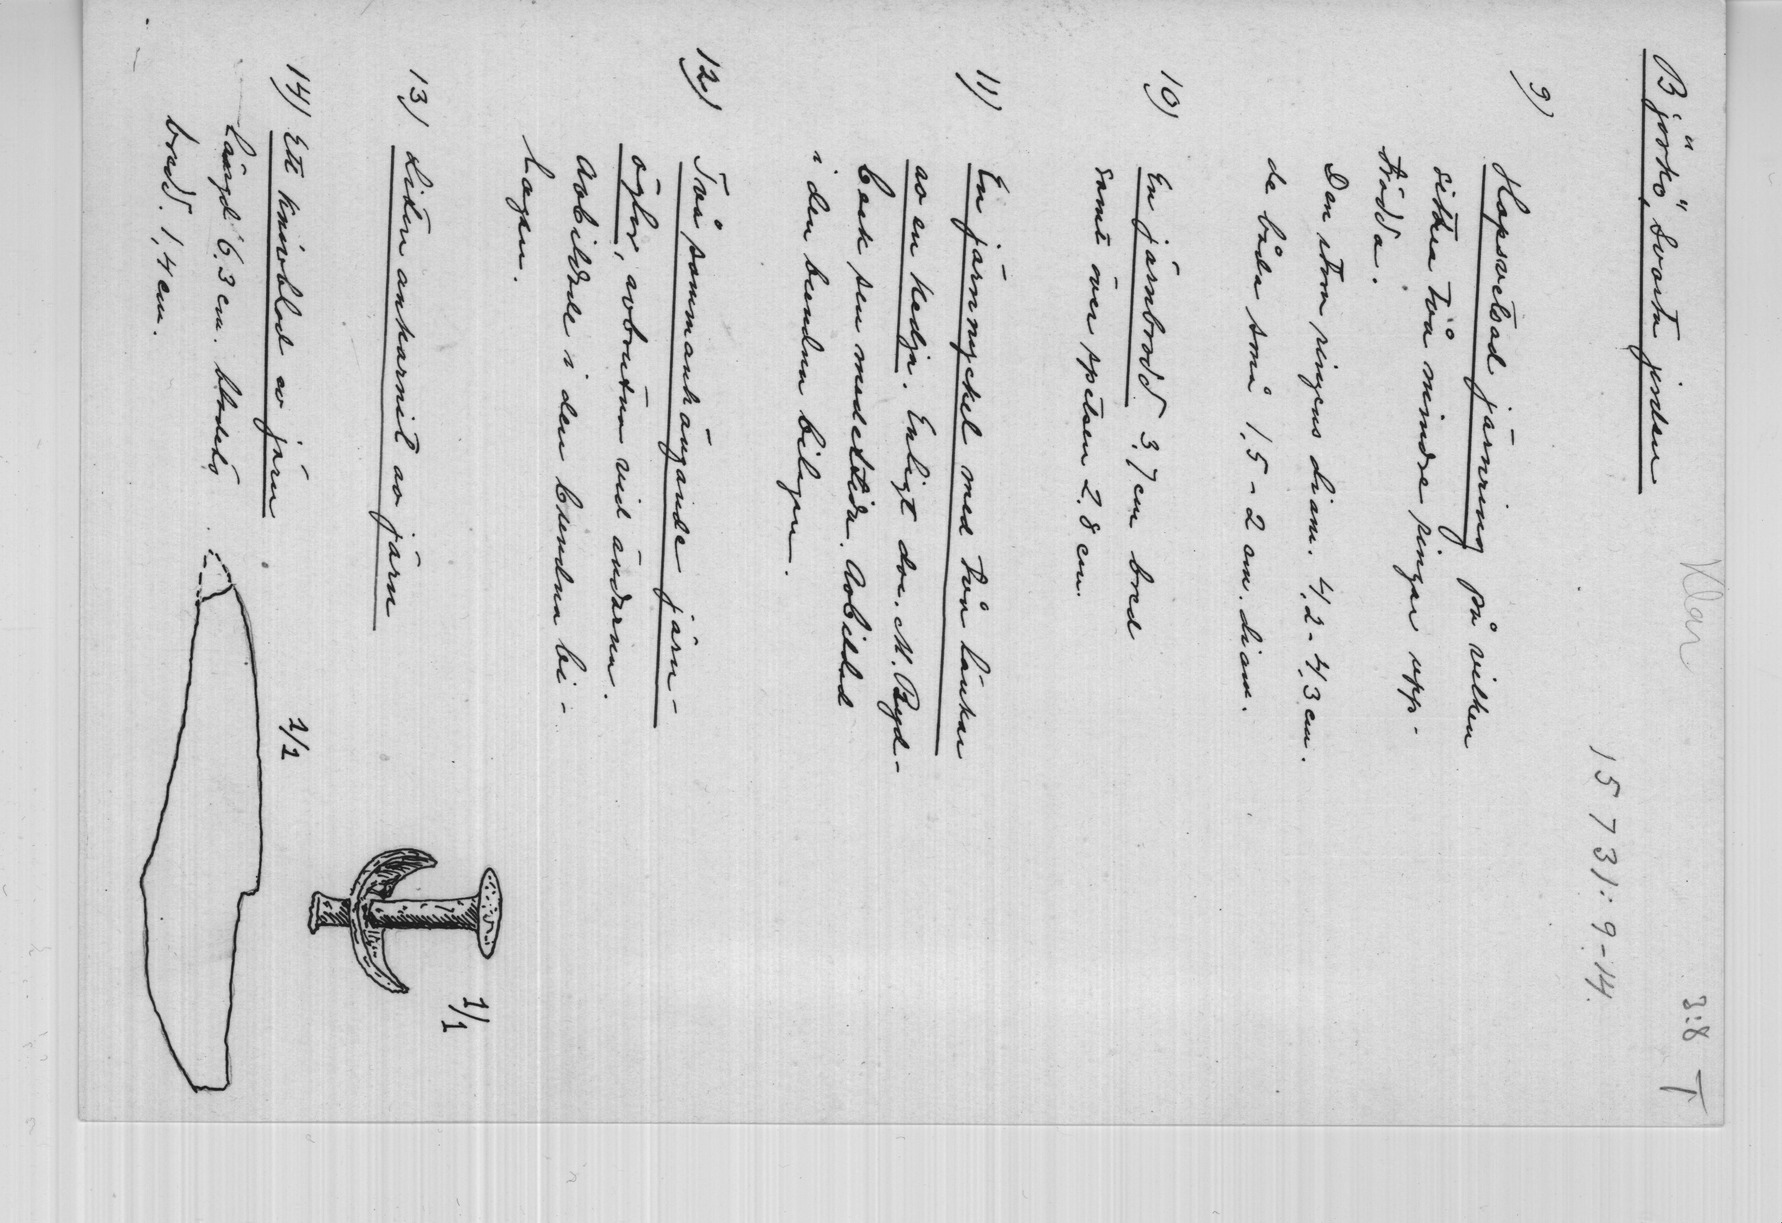 Klar
3:8 T
Björkö, "Svarta jorden"
15731:9-14.
9) Hopsvetsad järnring på vilken
sitta två mindre ringar upp-
trädda.
Den stora ringens diam. 4,2-4,3 cm.
de båda små 1,5-2 cm. diam.
10) En järnbrodd 3,7 cm bred
samt över spetsen 2,8 cm.
11) En järnnyckel med två länkar
av en kedja. Enligt doc. M. Ryd-
beck sen medeltida. Avbildad
i den bundna bilagan.
12) Två sammanhängande järn-
öglor, avbrutna vid ändarna.
Avbildade i den bundna bi-
lagan.
13) Liten ankarnit av järn
1/1
14) Ett knivblad av järn
Längd 6,3 cm. bladets
bredd. 1,4 cm.
1/1